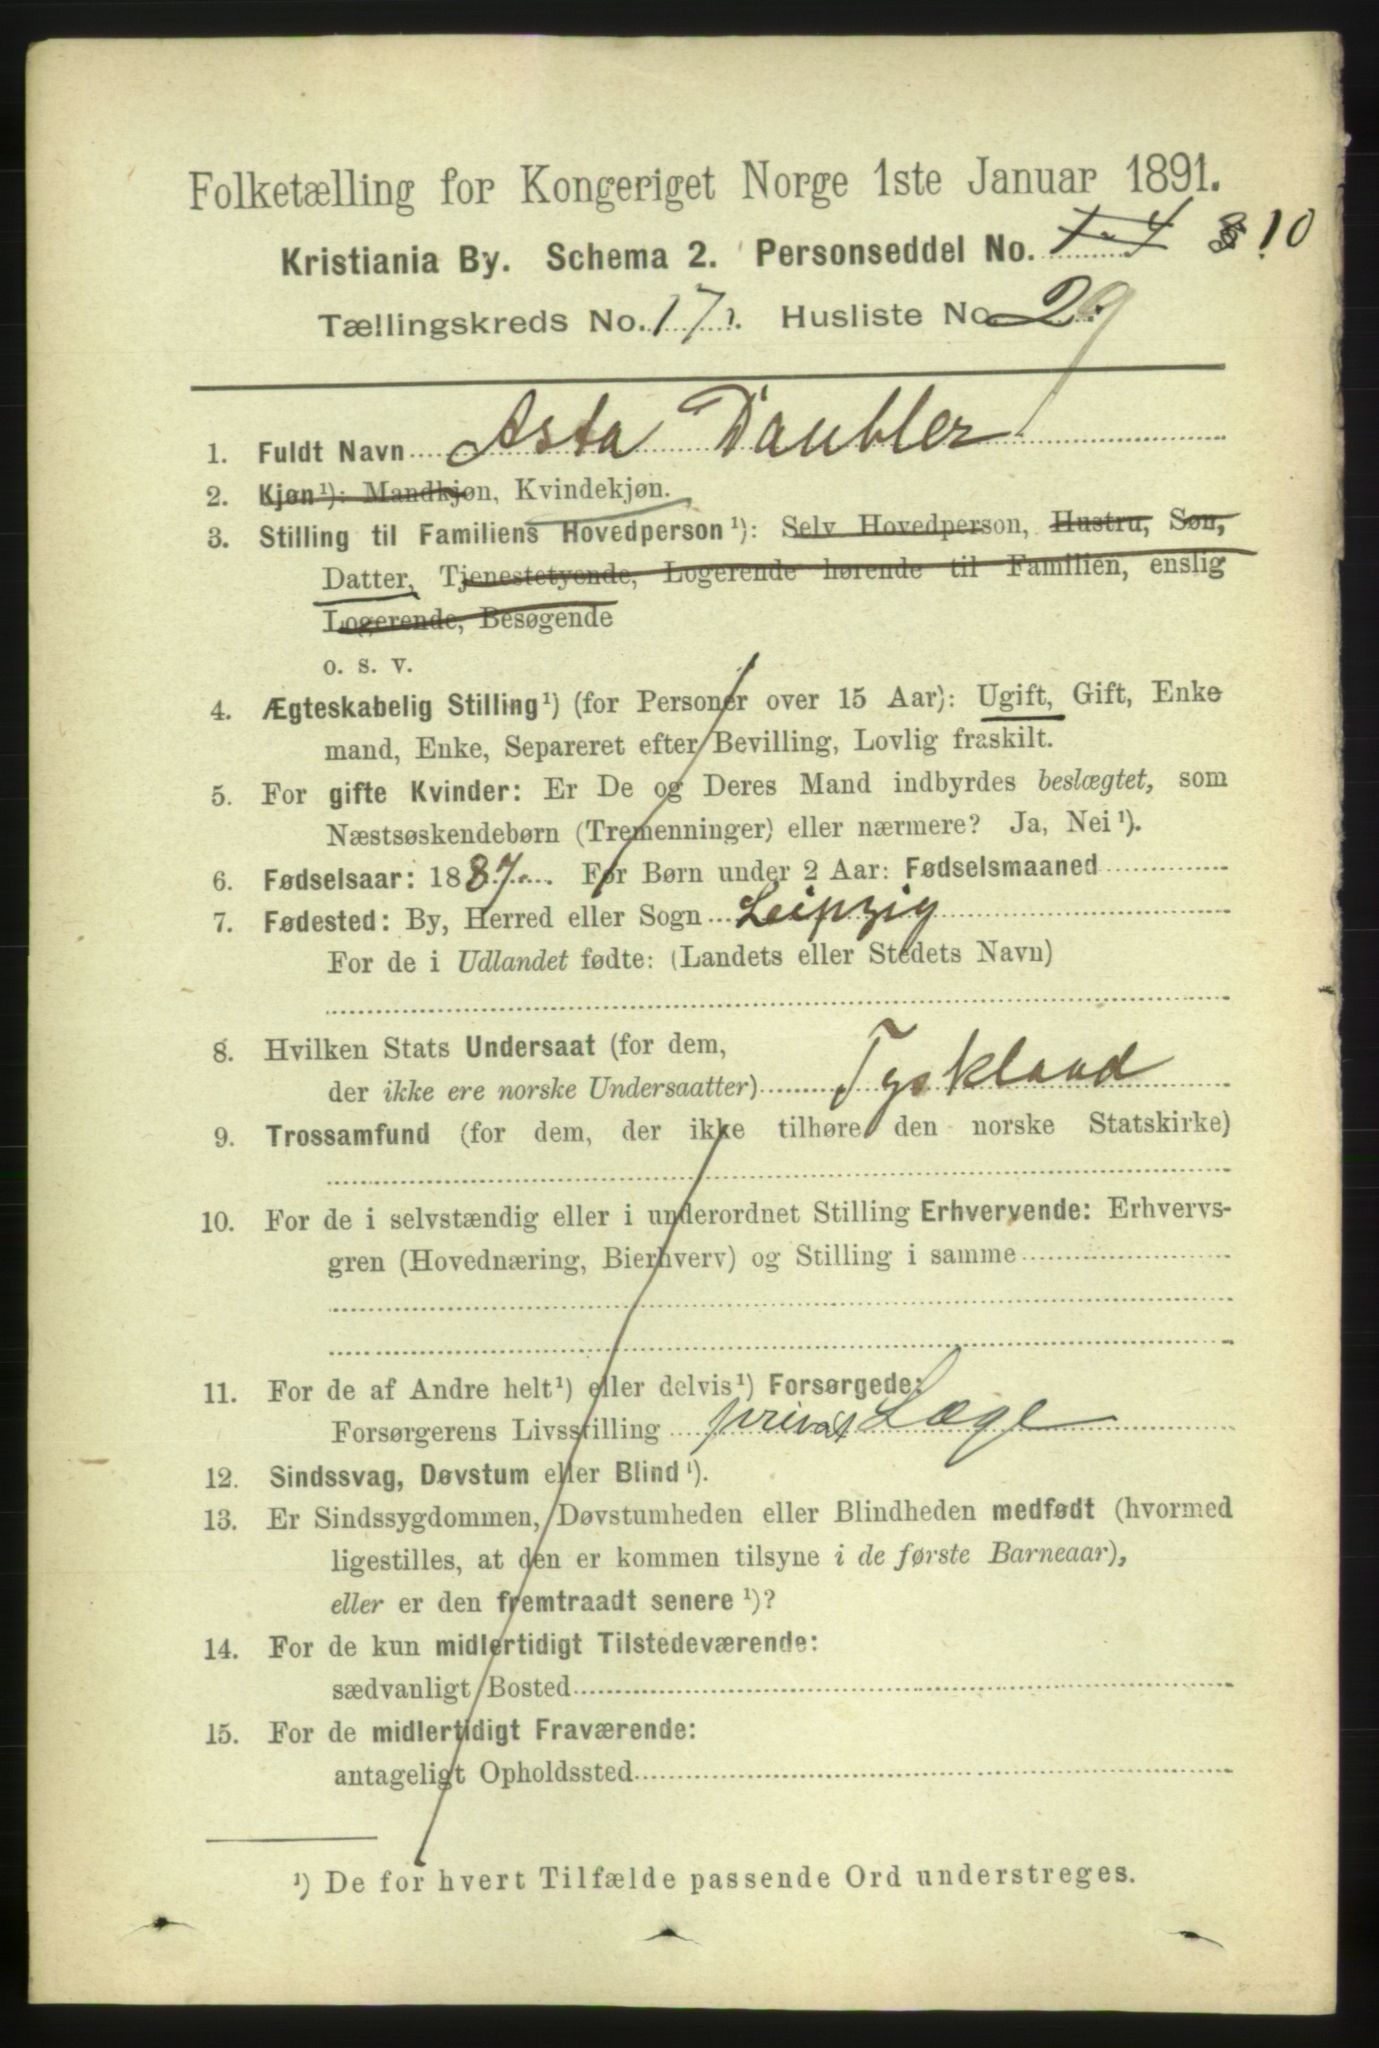 Folketælling for Kongeriget Norge 1ste Januar 1891.
Kristiania By. Schema 2. Personseddel No. 1-4 8 10
Tællingskreds No. 171. Husliste No. 29
1. Fuldt Navn Asta Däubler
2. Kjøn¹): Mandkjøn, Kvindekjøn.
3. Stilling til Familiens Hovedperson¹): Selv Hovedperson, Hustru, Søn,
Datter, Tjenestetyende, Logerende hørende til Familien, enslig
Logerende, Besøgende
o. s. v.
4. Ægteskabelig Stilling¹) (for Personer over 15 Aar): Ugift, Gift, Enke-
mand, Enke, Separeret efter Bevilling, Lovlig fraskilt.
5. For gifte Kvinder: Er De og Deres Mand indbyrdes beslægtet, som
Næstsøskendebørn (Tremenninger) eller nærmere? Ja, Nei¹).
6. Fødselsaar: 1887. For Børn under 2 Aar: Fødselsmaaned
7. Fødested: By, Herred eller Sogn Leipzig
For de i Udlandet fødte: (Landets eller Stedets Navn)
8. Hvilken Stats Undersaat (for dem,
der ikke ere norske Undersaatter) Tyskland
9. Trossamfund (for dem, der ikke tilhøre den norske Statskirke)
10. For de i selvstændig eller i underordnet Stilling Erhvervende: Erhvervs-
gren (Hovednæring, Bierhverv) og Stilling i samme
11. For de af Andre helt¹) eller delvis¹) Forsørgede:
Forsørgerens Livsstilling privat Læge
12. Sindssvag, Døvstum eller Blind¹).
13. Er Sindssygdommen, Døvstumheden eller Blindheden medfødt (hvormed
ligestilles, at den er kommen tilsyne i de første Barneaar),
eller er den fremtraadt senere¹)?
14. For de kun midlertidigt Tilstedeværende:
sædvanligt Bosted
15. For de midlertidigt Fraværende:
antageligt Opholdssted
¹) De for hvert Tilfælde passende Ord understreges.